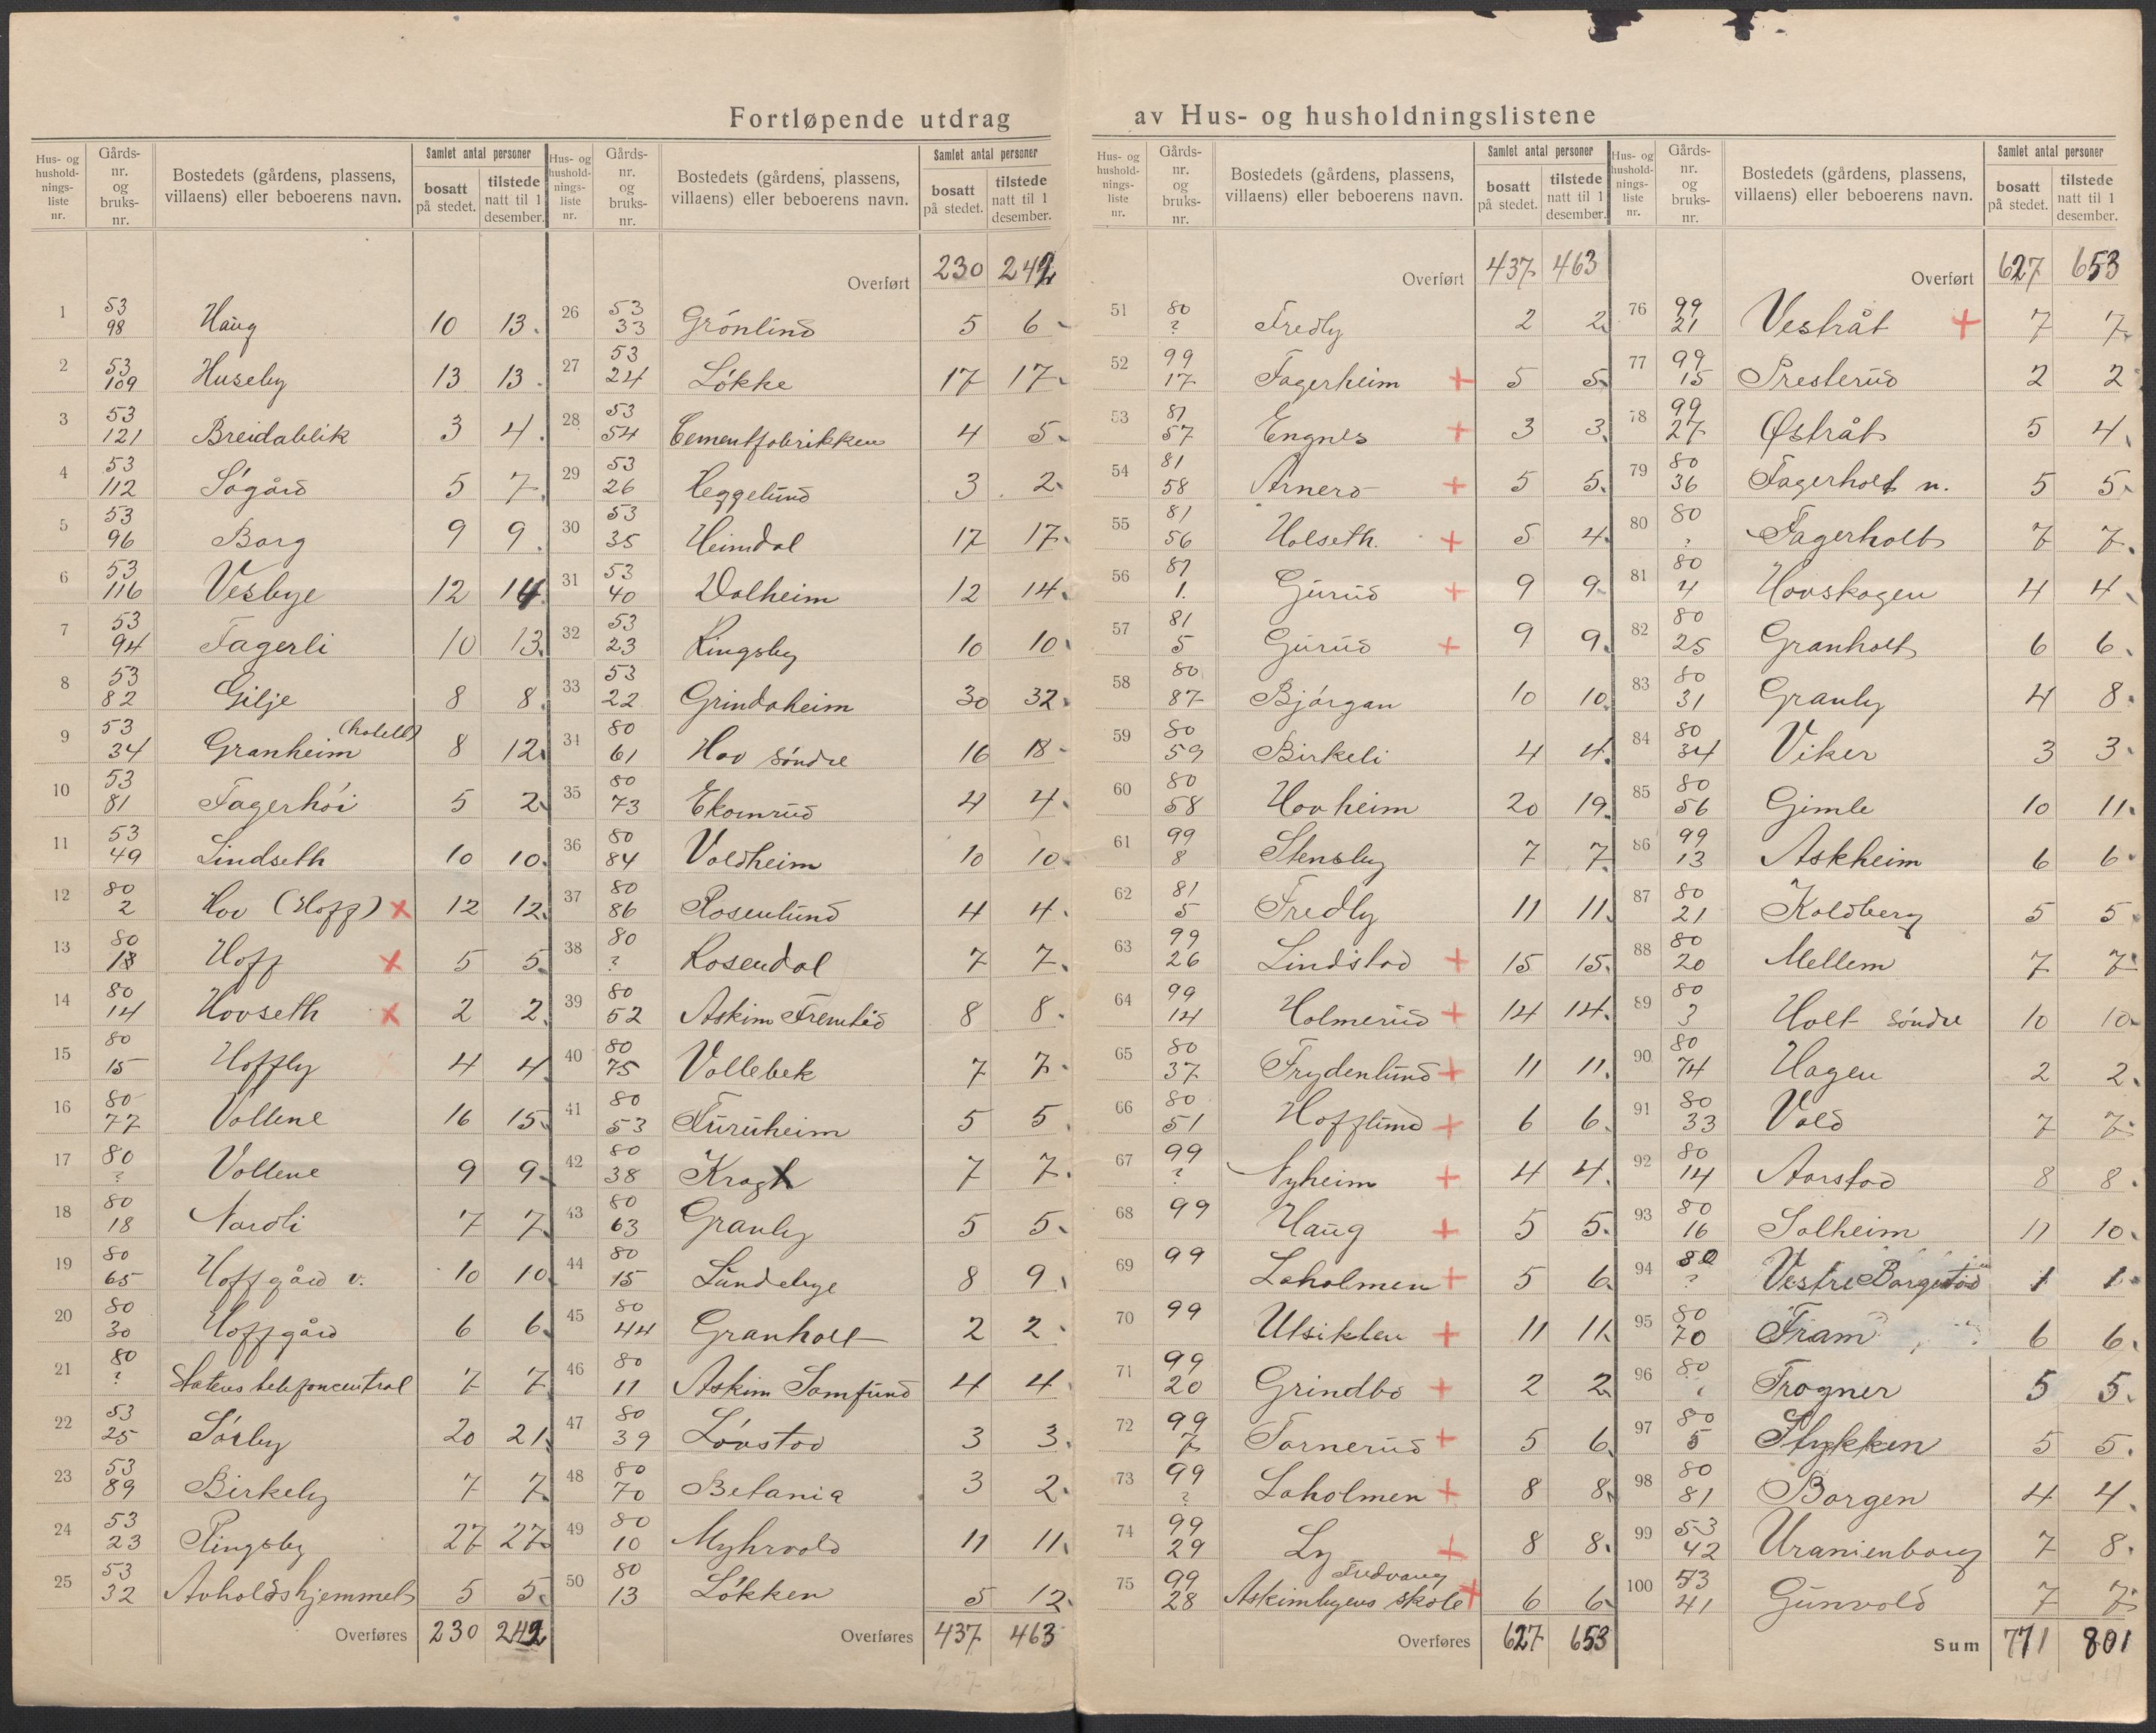 Fortløpende utdrag av Hus- og husholdningslistene
Hus- og husholdningsliste nr. | Gårdsnr. og bruksnr. | Bostedets (gårdens, plassens, villaens) eller beboerens navn. | Samlet antal personer: bosatt på stedet. | tilstede natt til 1 desember.
1 53/98 Haug 10 13
2 53/109 Huseby 13 13
3 53/121 Breidablik 3 4
4 53/112 Søgård 5 7
5 53/96 Borg 9 9
6 53/116 Vesbye 12 14
7 53/94 Fagerli 10 13
8 53/82 Gilje 8 8
9 53/34 Granheim (hotell) 8 12
10 53/81 Fagerhøi 5 2
11 53/49 Lindseth 10 10
12 80/2 Hov (Hoff) × 12 12
13 80/18 Hoff × 5 5
14 80/14 Hovseth × 2 2
15 80/15 Hoffly 4 4
16 80/77 Vollene 16 15
17 80/? Vollene 9 9
18 80/18 Nordli 7 7
19 80/65 Hoffgård v. 10 10
20 80/30 Hoffgård 6 6
21 80/? Statens telefoncentral 7 7
22 53/25 Sørby 20 21
23 53/89 Birkely 7 7
24 53/23 Ringsby 27 27
25 53/32 Avholdshjemmet 5 5
Overføres 230 242
Hus- og husholdningsliste nr. | Gårdsnr. og bruksnr. | Bostedets (gårdens, plassens, villaens) eller beboerens navn. | Samlet antal personer: bosatt på stedet. | tilstede natt til 1 desember.
Overført 230 242
26 53/33 Grønlund 5 6
27 53/24 Løkke 17 17
28 53/54 Cementfabrikken 4 5
29 53/26 Heggelund 3 2
30 53/35 Heimdal 17 17
31 53/40 Dalheim 12 14
32 53/23 Ringsby 10 10
33 53/22 Grindaheim 30 32
34 80/61 Hov søndre 16 18
35 80/73 Ekornrud 4 4
36 80/84 Voldheim 10 10
37 80/86 Rosenlund 4 4
38 80/? Rosendal 7 7
39 80/52 Askim Fremtid 8 8
40 80/75 Vollebek 7 7
41 80/53 Furuheim 5 5
42 80/38 Kragh 7 7
43 80/63 Granly 5 5
44 80/15 Lundebye 8 9
45 80/44 Granholt 2 2
46 80/11 Askim Samfund 4 4
47 80/39 Løvstad 3 3
48 80/70 Betania 3 2
49 80/10 Myhrvold 11 11
50 80/13 Løkken 5 12
Overføres 437 463
Hus- og husholdningsliste nr. | Gårdsnr. og bruksnr. | Bostedets (gårdens, plassens, villaens) eller beboerens navn. | Samlet antal personer: bosatt på stedet. | tilstede natt til 1 desember.
Overført 437 463
51 80/? Fredly 2 2
52 99/17 Fagerheim + 5 5
53 81/57 Engnes + 3 3
54 81/58 Arnerd + 5 5
55 81/56 Holseth. + 5 4
56 81/1. Gurud + 9 9
57 81/5 Gurud + 9 9
58 80/87 Bjørgan 10 10
59 80/59 Birkeli 4 4
60 80/58 Hovheim 20 19
61 99/8 Stensby 7 7
62 81/5 Fredly 11 11
63 99/26 Lindstad + 15 15
64 99/14 Holmerud + 14 14
65 80/37 Frydenlund + 11 11
66 80/51 Hofflund + 6 6
67 99/? Nyheim + 4 4
68 99 Haug + 5 5
69 99 Laholmen + 5 6
70 99 Utsikten + 11 11
71 99/20 Grindbo + 2 2
72 99/7 Tornerud + 5 6
73 99/? Laholmen + 8 8
74 99/29 Ly + 8 8
75 99/28 Fredvang Askimbyens skole + 6 6
Overføres 627 653
Hus- og husholdningsliste nr. | Gårdsnr. og bruksnr. | Bostedets (gårdens, plassens, villaens) eller beboerens navn. | Samlet antal personer: bosatt på stedet. | tilstede natt til 1 desember.
Overført 627 653
76 99/21 Vestråt + 7 7
77 99/15 Presterud 2 2
78 99/27 Østråt 5 4
79 80/36 Fagerholt n. 5 5
80 80/? Fagerholt 7 7
81 80/4 Hovskogen 4 4
82 80/25 Granholt 6 6
83 80/31 Granly 4 8
84 80/34 Viker 3 3
85 80/56 Gimle 10 11
86 99/13 Askheim 6 6
87 80/21 Koldberg 5 5
88 80/20 Mellem 7 7
89 80/3 Holt søndre 10 10
90 80/74 Hagen 2 2
91 80/33 Vold 7 7
92 80/14 Aarstad 8 8
93 80/16 Solheim 11 10
94 80/? Vestre 1 1
95 80/70 Fram 6 6
96 80 Frogner 5 5
97 80/5 Stykken 5 5
98 80/81 Borgen 4 4
99 53/42 Uranienborg 7 8
100 53/41 Gunvold 7 7
Sum 771 801